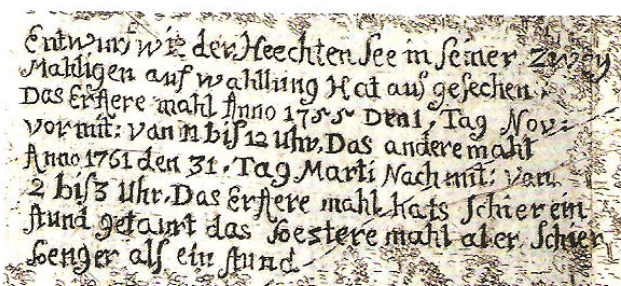 Entwurf wie der Heechten See in seiner zwey
Mahligen auf wahllung Hat aus gesechen.
Das Erstere mahl Anno 1755 Den 1. Tag Nov:
vor mit: van 11 bis 12 Uhr. Das andere mahl
Anno 1761 den 31. Tag Marti Nach mit: van
2 bis 3 Uhr. Das Erstere mahl hats schier ein
stund getaurt das mahl aber schier
lenger als ein stund